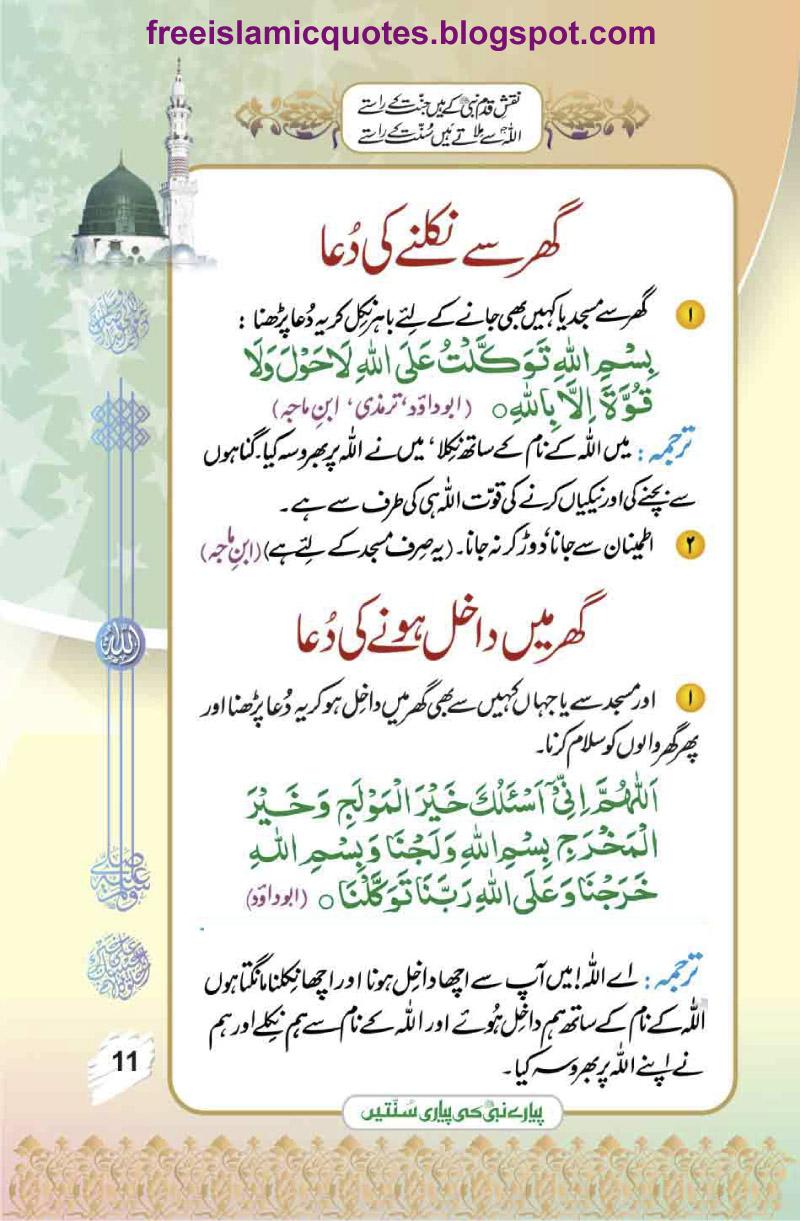 freeislamicquotes.blogspot.com
نقش قدم نبی ﷺ کے ہیں جنّت کے راستے
اللہ سے ملاتے ہیں سُنّت کے راستے
گھر سے نکلنے کی دُعا
۱ گھر سے مسجد یا کہیں بھی جانے کے لئے باہر نکل کر یہ دُعا پڑھنا :
بِسْمِ اللهِ تَوَكَّلْتُ عَلَى اللهِ لَا حَوْلَ وَلَا
قُوَّةَ اِلَّا بِاللهِ ○ (ابوداؤد، ترمذی، ابنِ ماجہ)
ترجمہ : میں اللہ کے نام کے ساتھ نِکلا، میں نے اللہ پر بھروسہ کیا۔ گناہوں
سے بچنے کی اور نیکیاں کرنے کی قوّت اللہ ہی کی طرف سے ہے۔
۲ اطمینان سے جانا، دوڑ کر نہ جانا۔ (یہ صِرف مسجد کے لئے ہے) (ابنِ ماجہ)
گھر میں داخل ہونے کی دُعا
۱ اور مسجد سے یا جہاں کہیں سے بھی گھر میں داخِل ہو کر یہ دُعا پڑھنا اور
پھر گھر والوں کو سلام کرنا۔
اَللّٰهُمَّ اِنِّیْٓ اَسْئَلُكَ خَيْرَ الْمَوْلَجِ وَخَيْرَ
الْمَخْرَجِ بِسْمِ اللهِ وَلَجْنَا وَبِسْمِ اللهِ
خَرَجْنَا وَعَلَى اللهِ رَبِّنَا تَوَكَّلْنَا ○ (ابوداؤد)
ترجمہ : اے اللہ! میں آپ سے اچھا داخِل ہونا اور اچھا نِکلنا مانگتا ہوں
اللہ کے نام کے ساتھ ہم داخِل ہُوئے اور اللہ کے نام سے ہم نِکلے اور ہم
نے اپنے اللہ پر بھروسہ کیا۔
اللہ
صلی اللہ علیہ وسلم
11
پیارے نبی ﷺ کی پیاری سُنّتیں